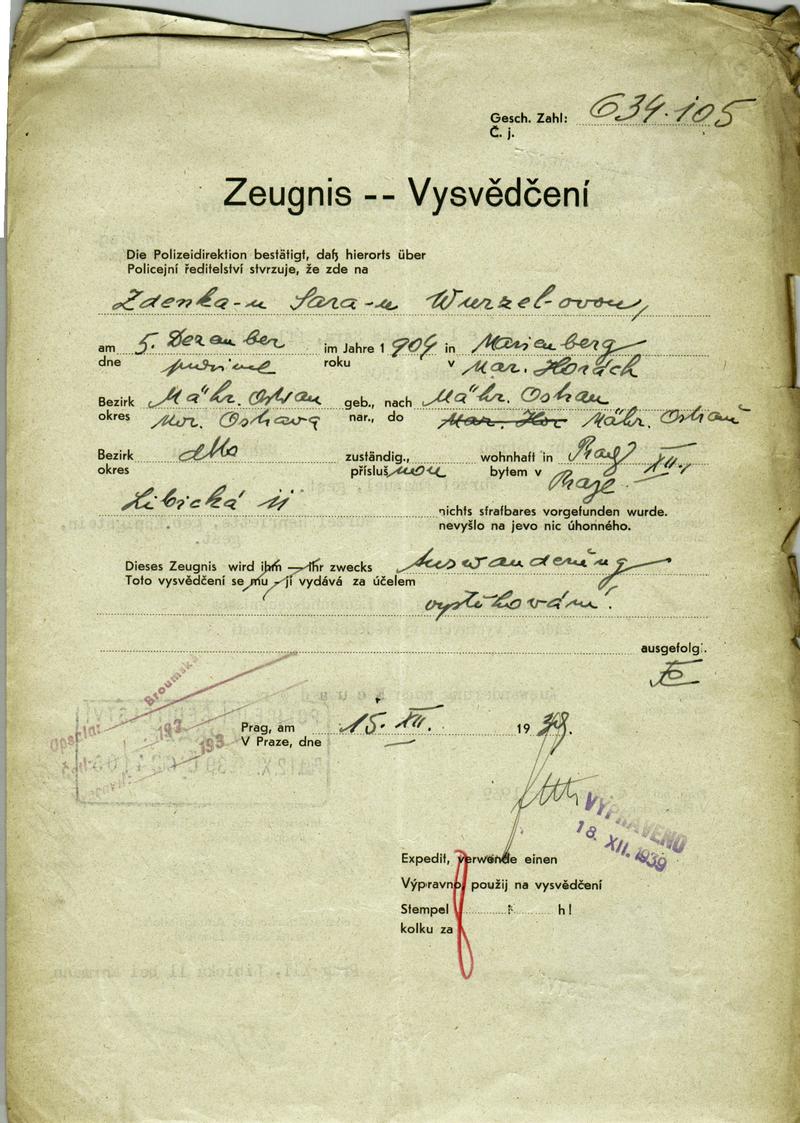 Gesch. Zahl: 634.105
Č. j.
Zeugnis -- Vysvědčení
Die Polizeidirektion bestätigt, daß hierorts über
Policejní ředitelství stvrzuje, že zde na
Zdenka-u Sara-u Wurzel-ovou,
am 5. Dezember im Jahre 1904 in Marienberg
dne prosince roku v Mar. Horách
Bezirk Mähr. Ostrau geb., nach Mähr. Ostrau
okres Mor. Ostrava nar., do Mar. Hor Mähr. Ostrau
Bezirk dtto zuständig., wohnhaft in Prag XII.,
okres přísluš nou bytem v Praze
Libická 11 nichts strafbares vorgefunden wurde.
nevyšlo na jevo nic úhonného.
Dieses Zeugnis wird ihm — ihr zwecks Auswanderung
Toto vysvědčení se mu - jí vydává za účelem
vystěhování.
ausgefolgt.
Broumská
Opsala:
193
193
Prag, am 15. XII. 1939.
V Praze, dne
VYPRAVENO
18. XII. 1939
Expedit, verwende einen
Výpravno, použij na vysvědčení
Stempel h!
kolku za